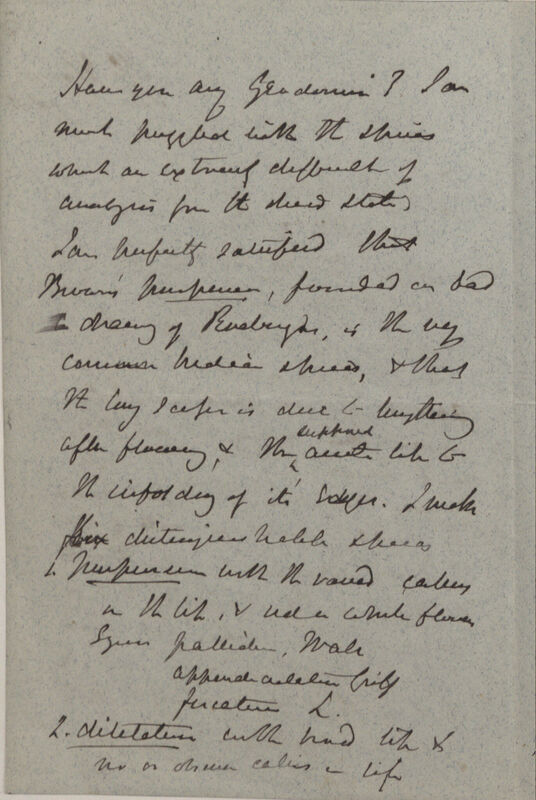 Have you any Geodorum? I am
much puzzled with the species
which are extremely difficult of
analysis from the dried state
I am perfectly satisfied that
Brown's purpureum, founded on bad
drawing of Roxburgh, is the very
common Indian species, & that
the long scape is due to lengthening
after flowering, & the supposed acute lip to
the infolding of its edges. I make
distinguishable species
1. purpureum with the raised callus
on the lip, & red or white flowers
Syn pallidum, Wall
appendiculatum Griff
furcatum L.
2. dilatatum with broad lip &
no or obscure callus on lip